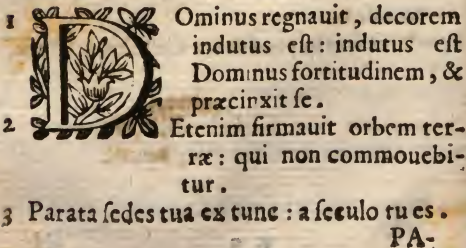 1 DOminus regnauit, decorem
indutus eſt: indutus eſt
Dominus fortitudinem, &
præcinxit ſe.
2 Etenim firmauit orbem ter-
ræ: qui non commouebi-
tur.
3 Parata ſedes tua ex tunc: a ſeculo tu es.
PA-